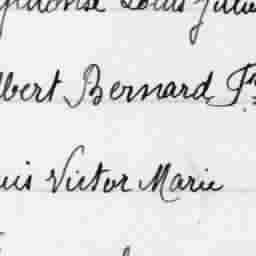 Louis Julie
lbert Bernard, Fs
uis Victor Marie